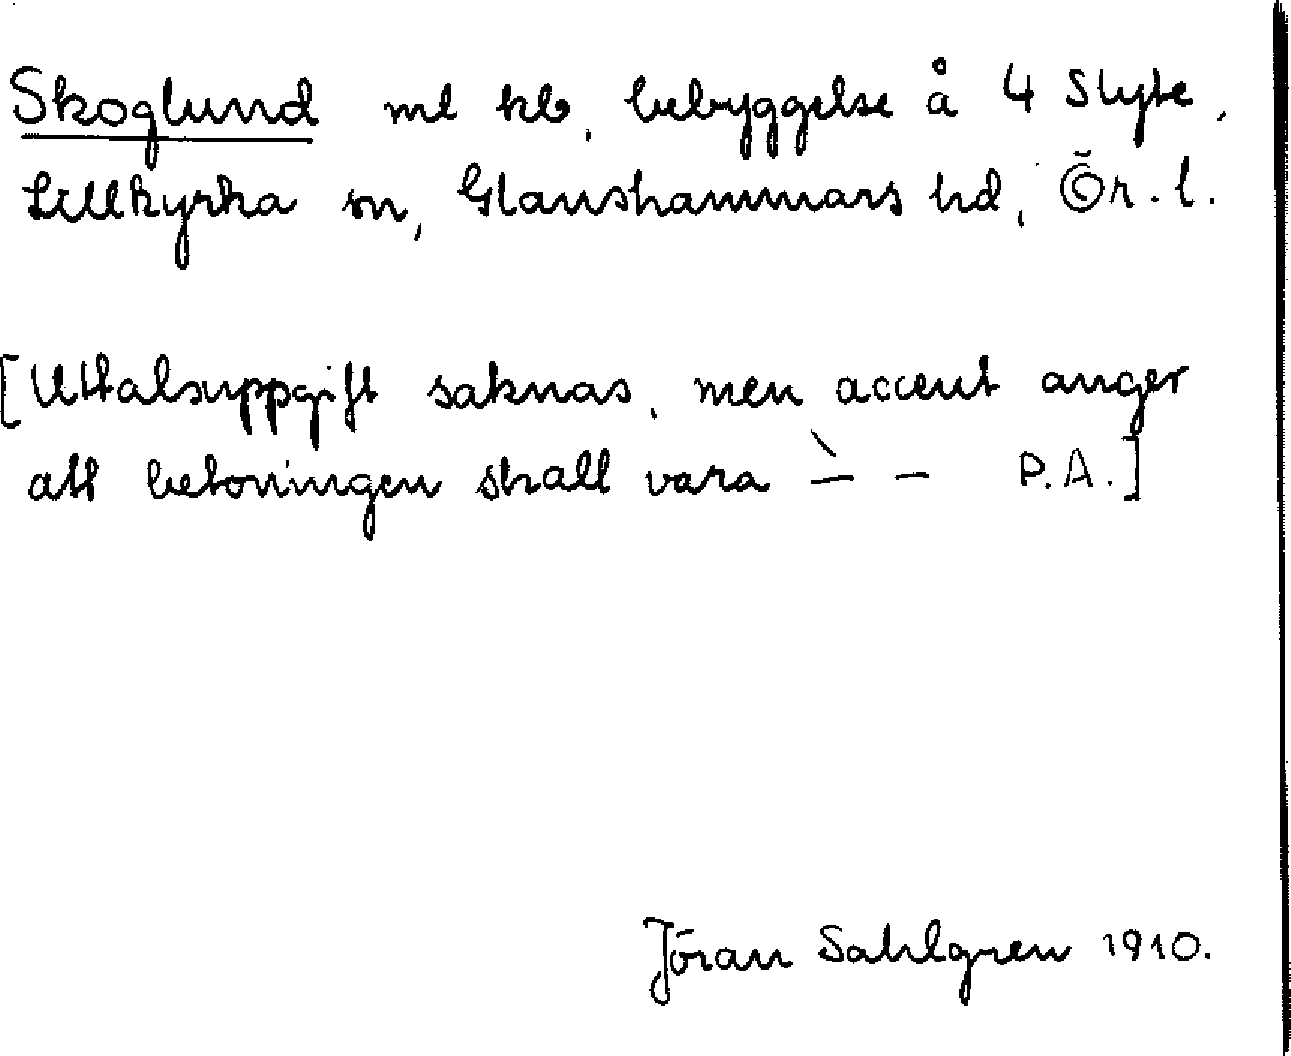 Skoglund ml hb, bebyggelse å 4 Slyte,
Lillkyrka sn, Glanshammars hd, Ör. l.
[Uttalsuppgift saknas, men accent anger
att betoningen skall vara `— — P.A.]
Jöran Sahlgren 1910.